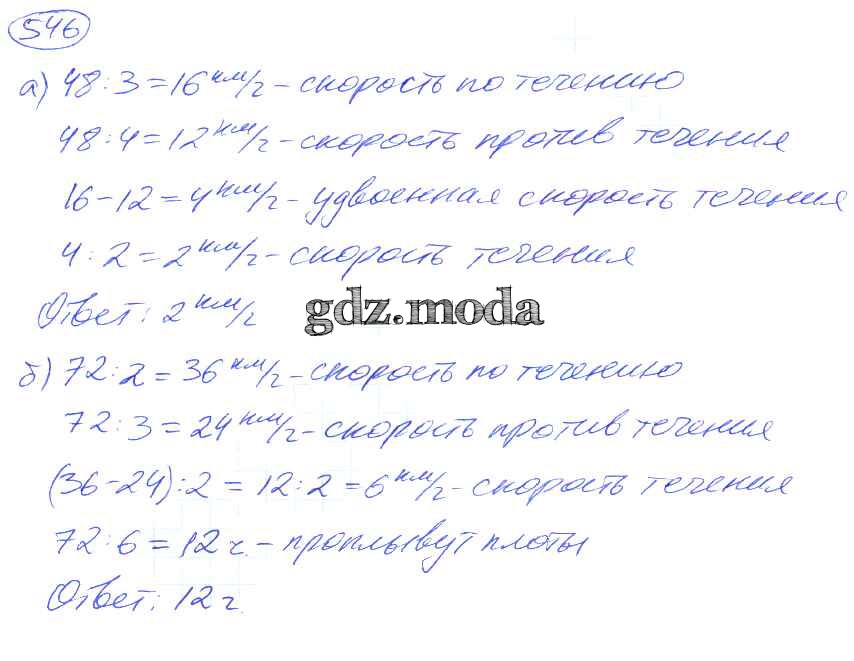 546
а) 48:3=16 км/ч - скорость по течению
48:4=12 км/ч - скорость против течения
16-12=4 км/ч - удвоенная скорость течения
4:2=2 км/ч - скорость течения
Ответ: 2 км/ч
gdz.moda
б) 72:2=36 км/ч - скорость по течению
72:3=24 км/ч - скорость против течения
(36-24):2=12:2=6 км/ч - скорость течения
72:6=12 ч. - проплывут плоты
Ответ: 12 ч.